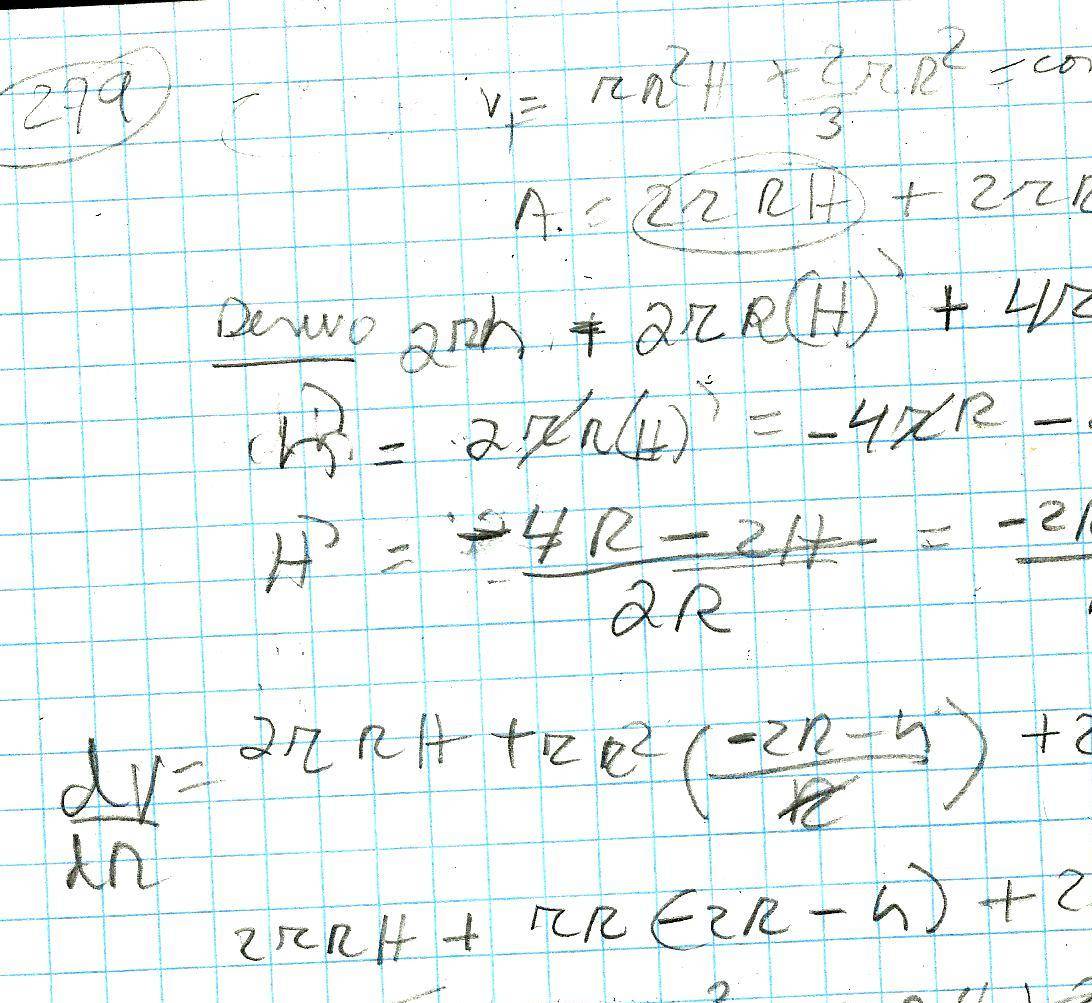 279
V₁ = πR²H + 2πR²/3 = con
A. = 2πRH + 2πR
Derivo 2πh + 2πR(H)' + 4π
(h)' = 2πR(H)' = -4πR -
H' = -4R - 2H / 2R = -2R
dV/dR = 2πRH + πR² (-2R-h / R) + 2
2πRH + πR(-2R - h) + 2